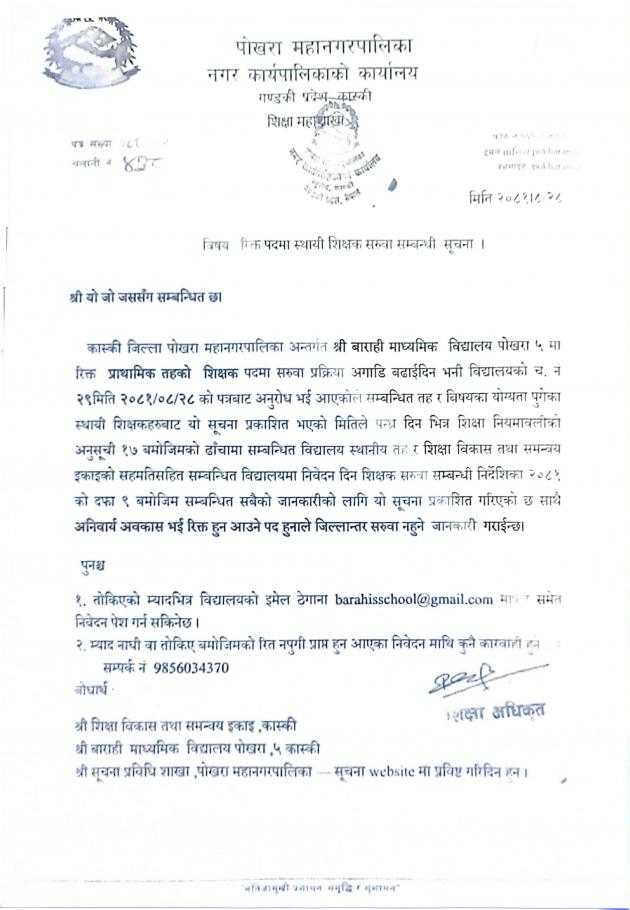 पोखरा महानगरपालिका
नगर कार्यपालिकाको कार्यालय
गण्डकी प्रदेश, कास्की
शिक्षा महाशाखा
नगर कार्यपालिकाको कार्यालय
पत्र संख्या
चलानी नं ४३८
मिति २०८१/८/२८
विषय रिक्त पदमा स्थायी शिक्षक सरुवा सम्बन्धी सूचना ।
श्री यो जो जससँग सम्बन्धित छ।
कास्की जिल्ला पोखरा महानगरपालिका अन्तर्गत श्री बाराही माध्यमिक विद्यालय पोखरा ५ मा
रिक्त प्राथामिक तहको शिक्षक पदमा सरुवा प्रक्रिया अगाडि बढाईदिन भनी विद्यालयको च. न
२९मिति २०८१/०८/२८ को पत्रबाट अनुरोध भई आएकोले सम्बन्धित तह र बिषयका योग्यता पुगेका
स्थायी शिक्षकहरुबाट यो सूचना प्रकाशित भएको मितिले पन्ध्र दिन भित्र शिक्षा नियमावलीको
अनुसूची १७ बमोजिमको ढाँचामा सम्बन्धित विद्यालय स्थानीय तह र शिक्षा विकास तथा समन्वय
इकाइको सहमतिसहित सम्बन्धित विद्यालयमा निवेदन दिन शिक्षक सरुवा सम्बन्धी निर्देशिका २०८१
को दफा ९ बमोजिम सम्बन्धित सबैको जानकारीको लागि यो सूचना प्रकाशित गरिएको छ साथै
अनिवार्य अवकास भई रिक्त हुन आउने पद हुनाले जिल्लान्तर सरुवा नहुने जानकारी गराईन्छ।
पुनश्च
१. तोकिएको म्यादभित्र विद्यालयको इमेल ठेगाना barahisschool@gmail.com समेत
निवेदन पेश गर्न सकिनेछ ।
२. म्याद नाघी वा तोकिए बमोजिमको रित नपुगी प्राप्त हुन आएका निवेदन माथि कुनै कारवाही हुने
सम्पर्क नं 9856034370
बोधार्थ
शिक्षा अधिकृत
श्री शिक्षा विकास तथा समन्वय इकाइ ,कास्की
श्री बाराही माध्यमिक विद्यालय पोखरा ,५ कास्की
श्री सूचना प्रविधि शाखा ,पोखरा महानगरपालिका — सूचना website मा प्रविष्ट गरिदिन हुन ।